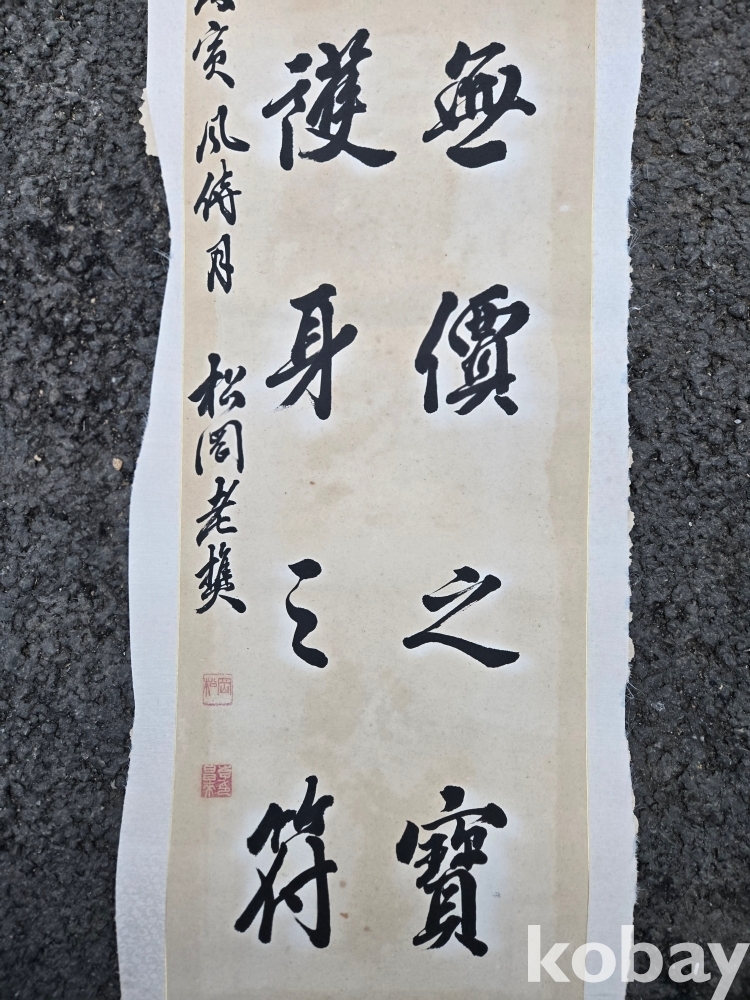 無價之寶
護身之符
寅風待月
松岡老樵
kobay